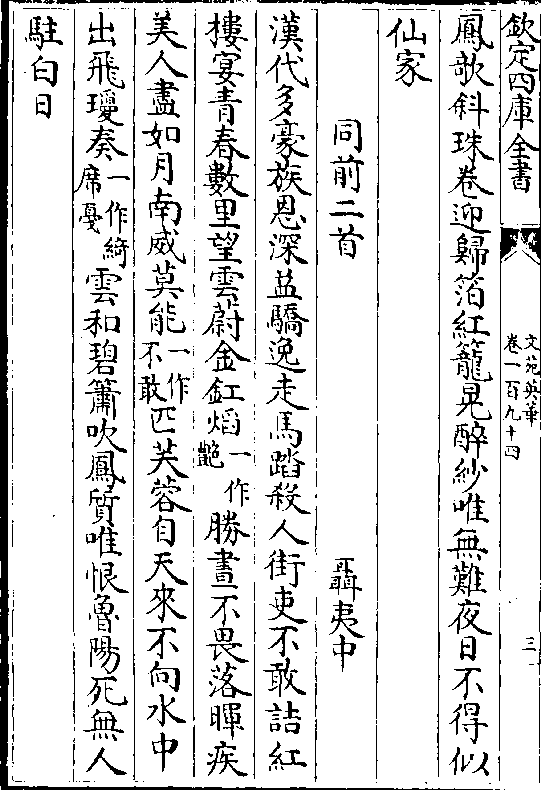 欽定四庫全書
文苑英華
卷一百九十四
三
鳳歌斜珠卷迎歸箔紅籠晃醉紗唯無難夜日不得似
仙家
同前二首　聶夷中
漢代多豪族恩深益驕逸走馬踏殺人街吏不敢詰紅
樓宴青春數里望雲蔚金缸焰一作艷勝晝不畏落暉疾
美人盡如月南威莫能一作不敢匹芙蓉自天來不向水中
出飛瓊奏一作綺席戞雲和碧簫吹鳳質唯恨魯陽死無人
駐白日